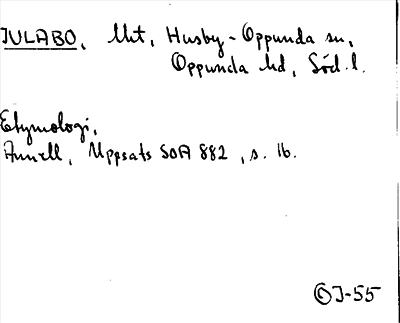 JULABO, Utt, Husby-Oppunda sn,
Oppunda hd, Söd.l.
Etymologi,
Annell, Uppsats SOA 882, s. 16.
© J-55